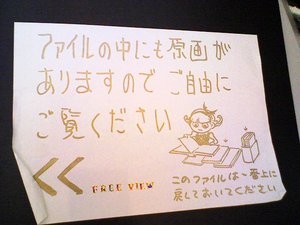 ファイルの中にも原画が
ありますので ご自由に
ご覧ください
<< FREE VIEW
このファイルは一番上に
戻しておいてください